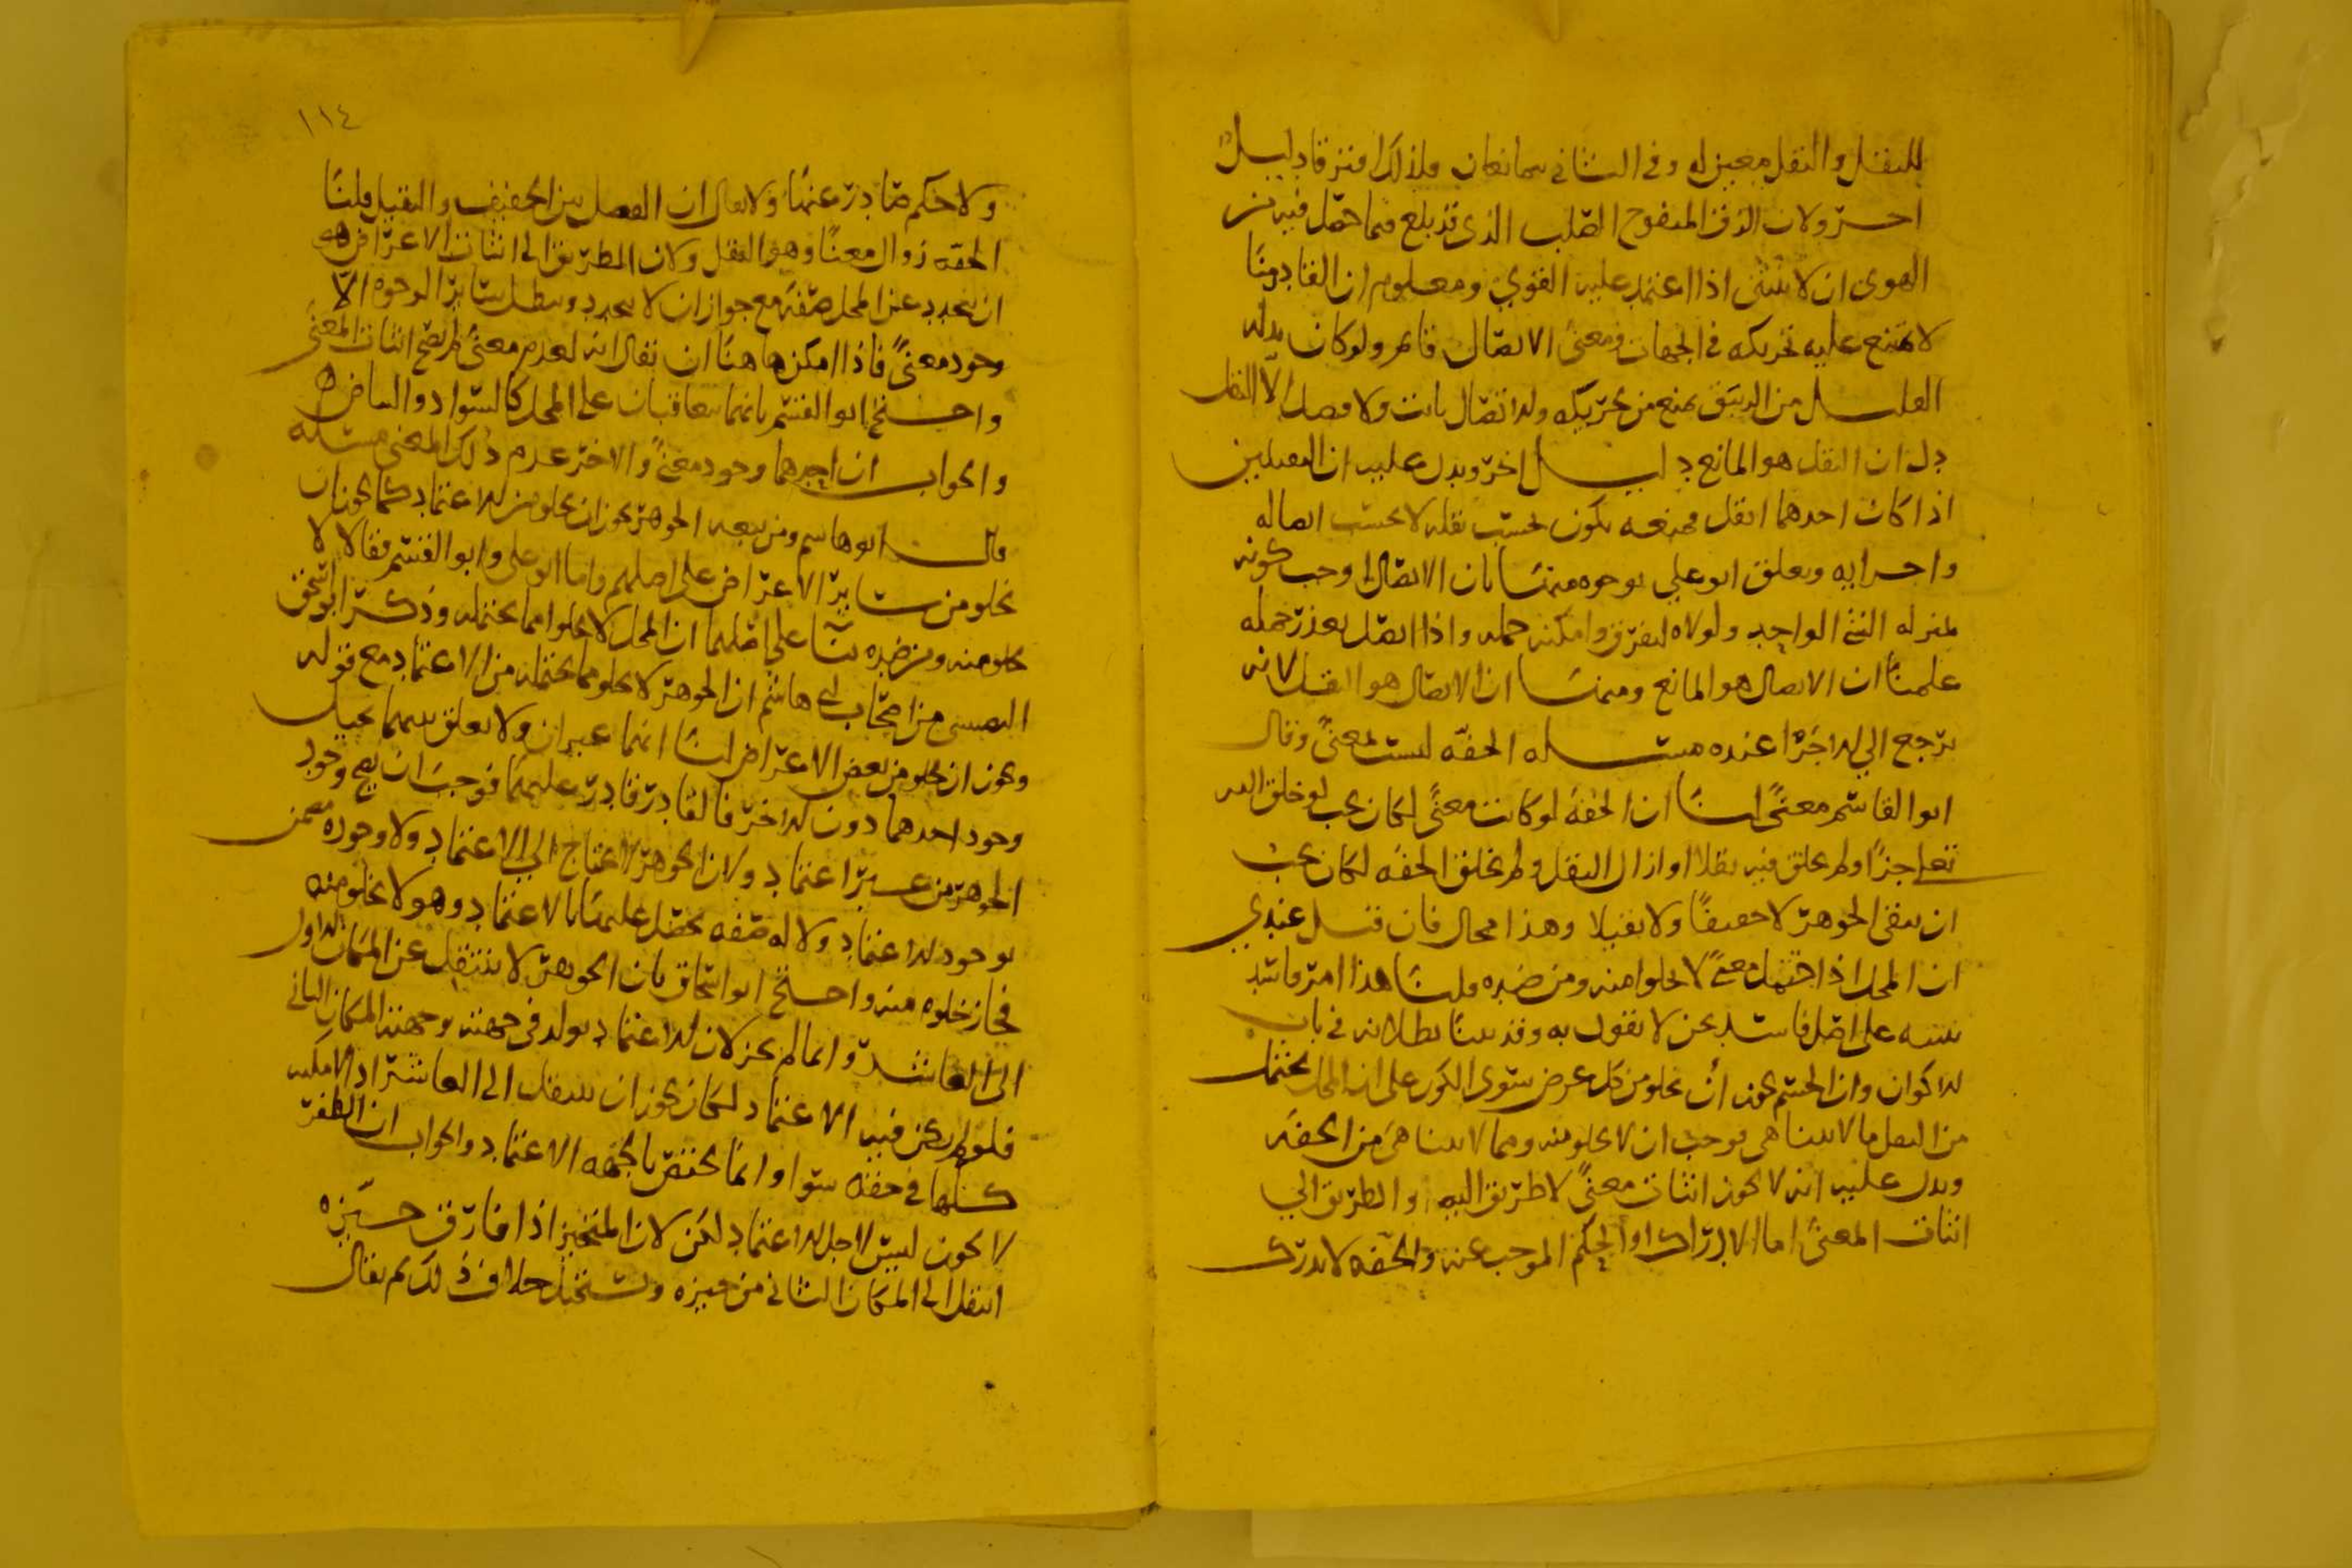 للثقل والثقل معين له وفي الثاني يتمانعان ولذلك افترقا دليل
اخر ولان الزق المنفوخ الصلب الذي قد بلغ فيما حصل فيه من
الهوى ان لا ينثني اذا اعتمد عليه القوي ومعلوم ان القادر منا
لا يمتنع عليه تحريكه في الجهات ومعنى الاتصال قائم ولو كان بدله
القليل من الزيبق يمنع من تحريكه والاتصال ثابت ولا فصل الا الثقل
دل ان الثقل هو المانع دليل اخر ويدل عليه ان الثقيلين
اذا كان احدهما اثقل فمنعه يكون بحسب ثقله لا بحسب اتصاله
واجزايه وتعلق ابو علي بوجوه منها بان الاتصال اوجب كونه
بمنزلة الشي الواحد ولولاه لتفرق وامكنه حمله واذا اتصل تعذر حمله
علمنا ان الاتصال هو المانع ومنها ان الاتصال هو الثقل لانه
يرجع الى الاجزا عنده مسئله الخفه ليست بمعنى وقال
ابو القاسم معنى لنا ان الخفه لو كانت معنى لكان يجب لو خلق الله
تعالى جزا ولم يخلق فيه ثقلا او ازال الثقل ولم يخلق الخفه لكان يجب
ان يبقى الجوهر لا خفيفا ولا ثقيلا وهذا محال فان قيل عندي
ان المحل اذا احتمل معنى لا يخلوا منه ومن ضده قلنا هذا امر فاسد
بنيته على اصل فاسد نحن لا نقول به وقد بينا بطلانه في باب
الاكوان وان الجسم يجوز أن يخلو من كل عرض سوى الكون على ان المحل يحتمل
من الثقل ما لا يتناهى فوجب ان لا يخلو منه ومما لا يتناهى من الخفه
ويدل عليه انه لا يجوز اثبات معنى لا طريق اليه والطريق الى
اثبات المعنى اما الادراك او الحكم الموجب عنه والخفه لا تدرك
١١٤
ولا حكم صادر عنها ولا يقال ان الفصل بين الخفيف والثقيل قلنا
الخفه زوال معنا وهو الثقل ولان الطريق الى اثبات الاعراض هو
ان يتجدد عند المحل صفة مع جواز ان لا يتجدد ويبطل ساير الوجوه الا
وجود معنى فاذا امكن هاهنا ان يقال انه لعدم معنى لم يصح اثبات المعنى
واحتج ابو القسم بانهما يتعاقبان على المحل كالسواد والبياض
والجواب ان احدهما وجود معنى والاخر عدم ذلك المعنى مسئله
قال ابو هاشم ومن تبعه الجوهر يجوز ان يخلو من الاعتماد كما يجوز ان
يخلو من ساير الاعراض على اصلهم واما ابو علي وابو القسم فقالا لا
يخلو منه ومن ضده بنآ على اصلهما ان المحل لا يخلوا مما يحتمله وذكر ابو اسحق
النصيبي من اصحاب ابي هاشم ان الجوهر لا يخلو مما يحتمله من الاعتماد مع قوله
ويجوز ان يخلو من بعض الاعراض لنا انهما غيران ولا تعلق بينهما يحيل
وجود احدهما دون الاخر فالقادر قادر عليهما فوجب ان يصح وجود
الجوهر من غير اعتماد ولان الجوهر لا يحتاج الى الاعتماد ولا وجوده مضمن
بوجود الاعتماد ولا له صفه تحصل عليها بالاعتماد وهو لا يخلو منه
فجاز خلوه منه واحتج ابو اسحاق بان الجوهر لا ينتقل عن المكان الاول
الى العاشر وانما لم يجز لان الاعتماد يولد في جهته وجهته المكان الثاني
فلو لم يكن فيه الاعتماد لكان يجوز ان ينتقل الى العاشر اذ الامكنه
كلها في حقه سوا وانما يختص بالجهه الاعتماد والجواب ان الطفر
لا يكون ليس لاجل الاعتماد لكن لان المتحيز اذا فارق حيزه
انتقل الى المكان الثاني من حيزه ويستحيل خلاف ذلك ثم يقال